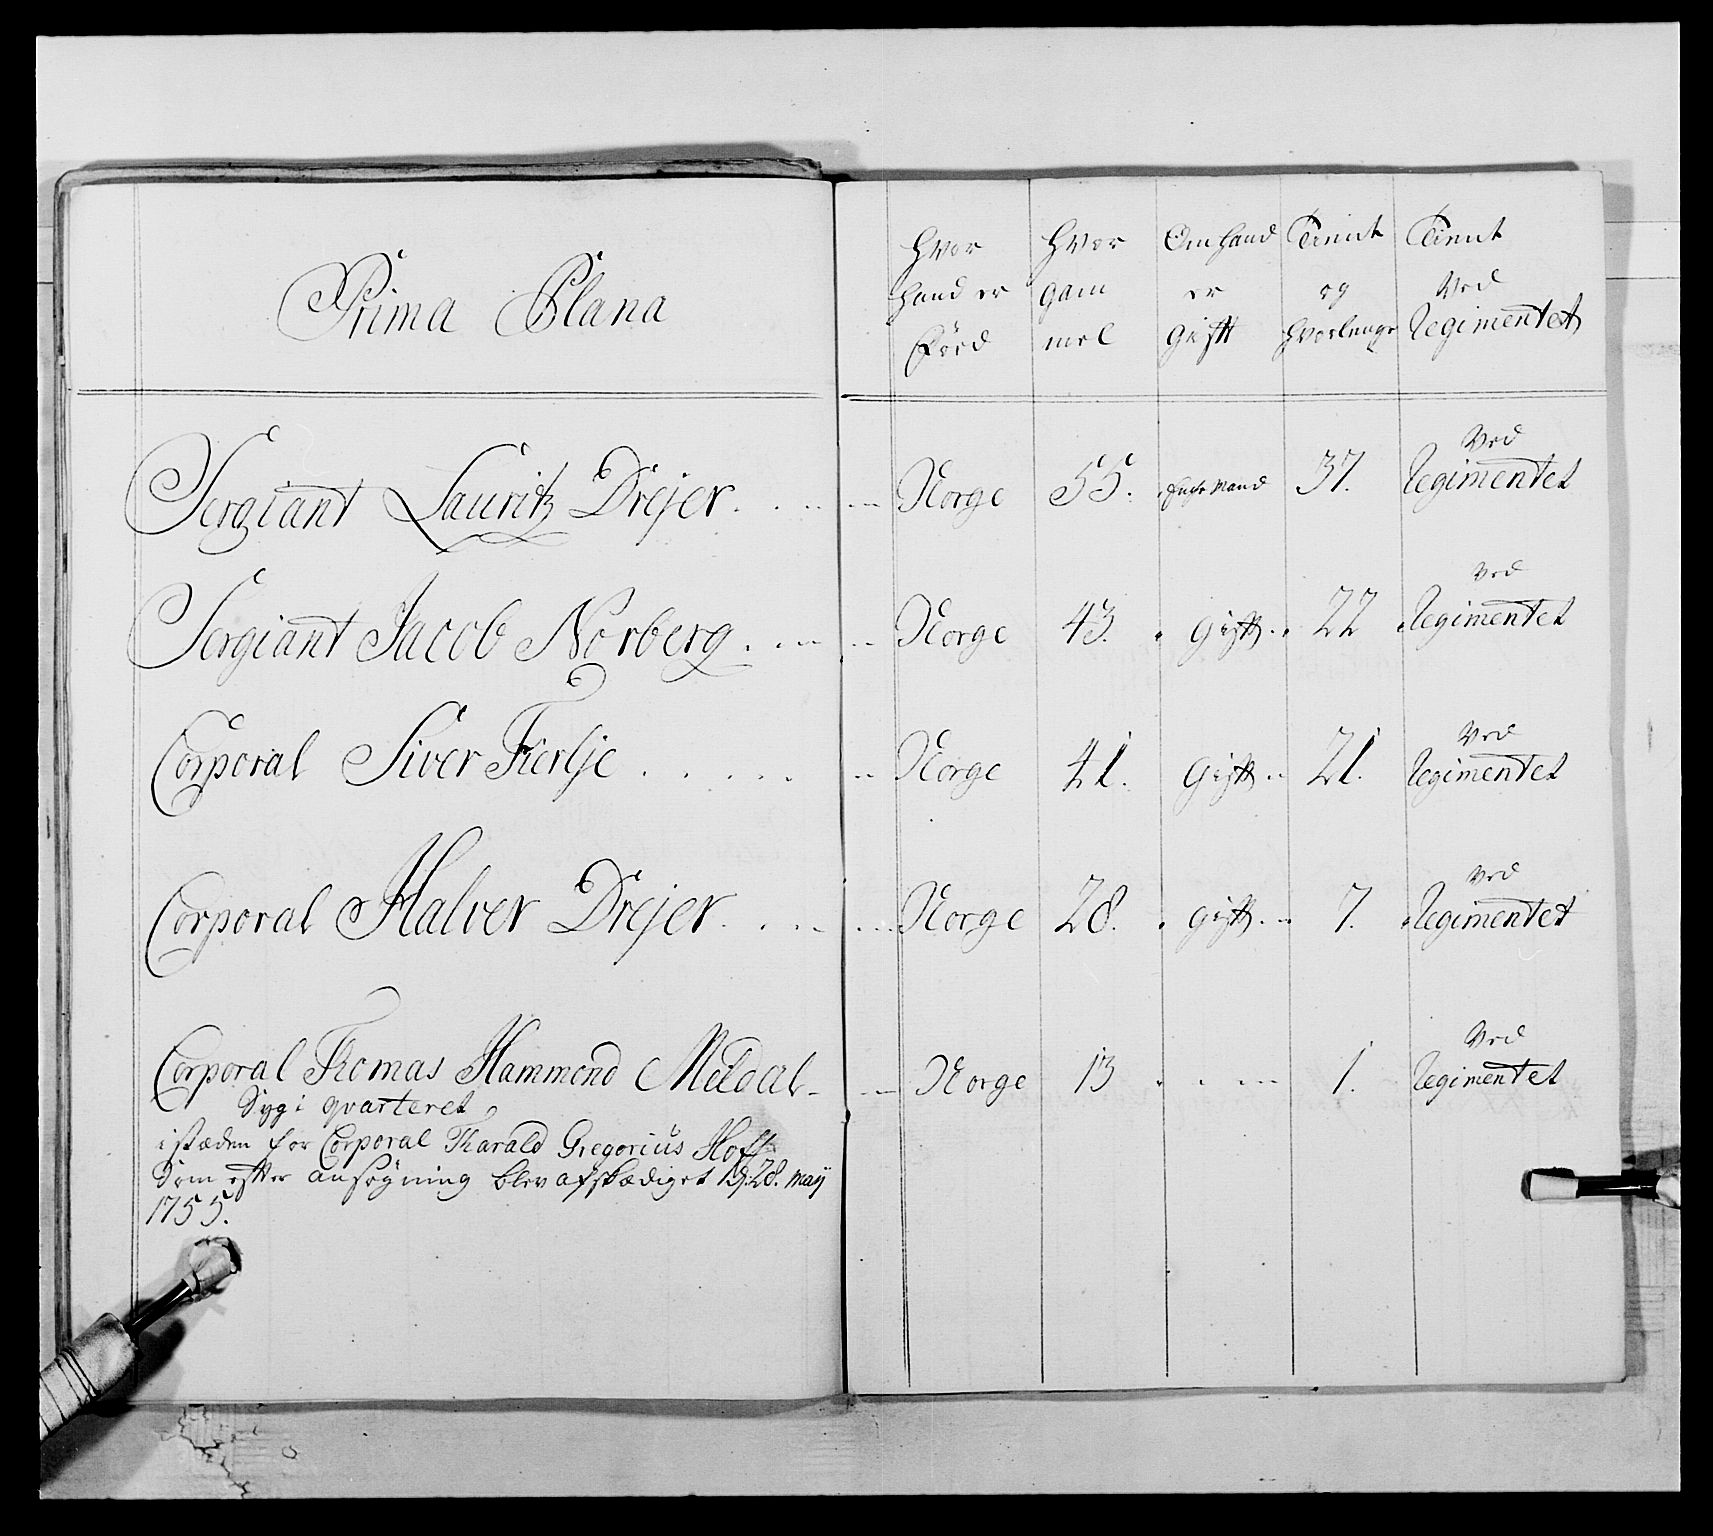 Prima Plana
Hvor hand er Föed
Hvor gam mel
Om hand er Gift
Tient og hvorlenge
Tient Ved Regimentet
Sergiant Lauritz Drejer Norge 55. Enke Mand 37. Ved Regimentet
Sergiant Jacob Norberg Norge 43. Gift 22 Ved Regimentet
Corporal Siver Norge 41. Gift 21. Ved Regimentet
Corporal Halver Drejer Norge 28. Gift 7. Ved Regimentet
Corporal Thomas Hammond Meldal Norge 13 1. Ved Regimentet
Syg i qvarteret
i stæden for Corporal Harald Gregorius Hoff
Som efter ansøgning blev afskædiget d. 28. maij
1755.